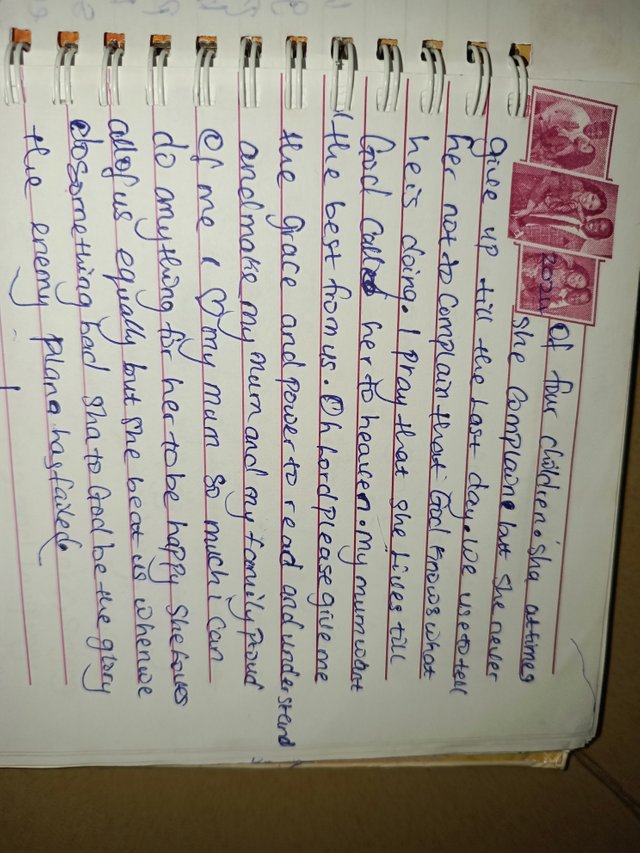 2024
of four children. Sha at times
She Complaine but she never
give up till the last day. We use to tell
her not to Complain that God knows what
he is doing. I pray that she Lives till
God called her to heaven. My mum want
the best from us. Oh Lord please give me
the grace and power to read and understand
and make my mum and my family Proud
of me i ♡ my mum so much i can
do anything for her to be happy She Loves
all of us equally but she beat us when we
do something bad sha to God be the glory
the enemy plane has failed.